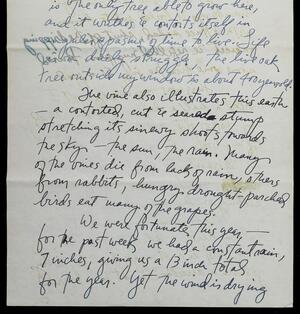 is the only tree able to grow here,
and it writhes & contorts itself in
a spasm of time to live. Life
is a daily struggle, the live oak
tree outside my window is about 40 years old.
The vine also illustrates this earth
— a contorted, cut & seared stump
stretching its sinewy shoots towards
the sky — the sun, the rain. Many
of the vines die from lack of rain, others
from rabbits, hungry, drought-parched
birds eat many of the grapes.
We were fortunate this year —
for the past week we had a constant rain,
7 inches, giving us a 13 inch total
for the year. Yet the wind is drying